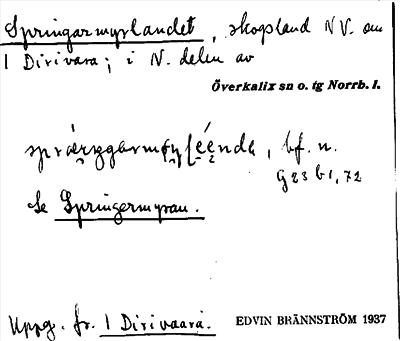 Springarmyrlandet, skogsland NV. om
1 Dirivara; i N. delen av
Överkalix sn o. tg Norrb. l.
bf. n.
G23 b1, 72
Se Springermyran.
Uppg. fr. 1 Dirivaara. EDVIN BRÄNNSTRÖM 1937